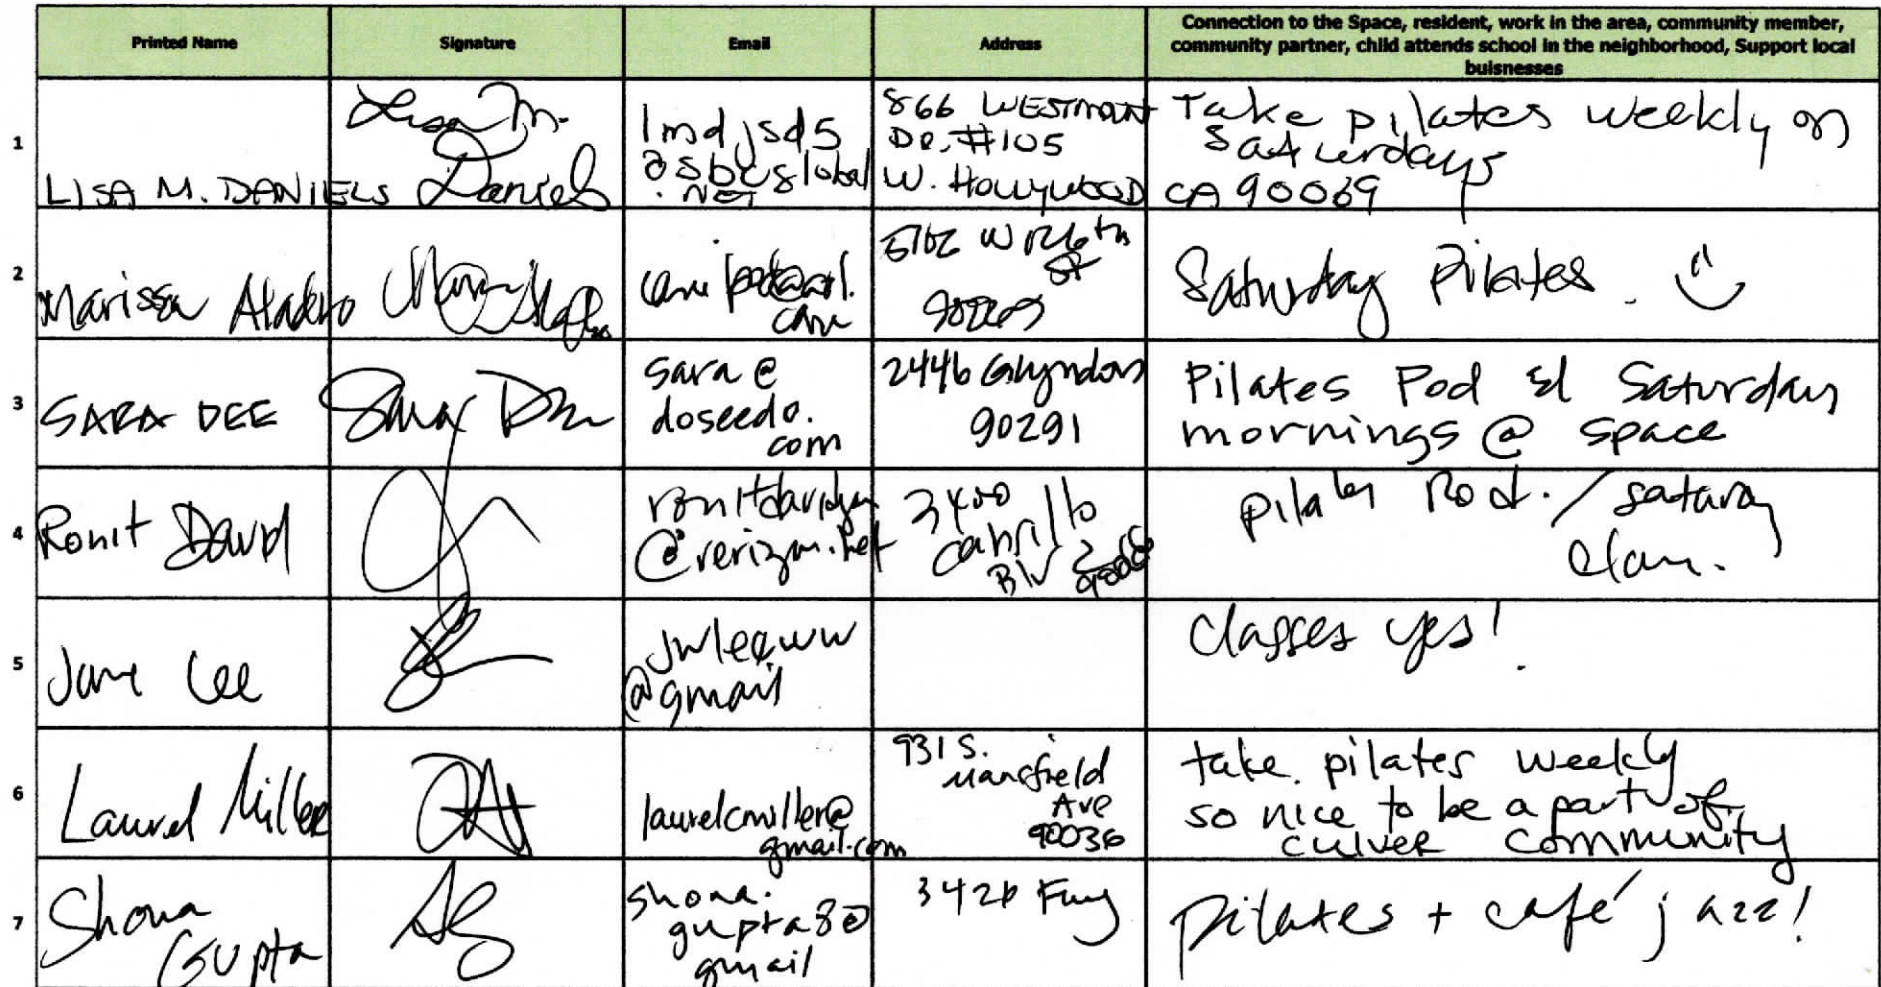 Printed Name
Signature
Email
Address
Connection to the Space, resident, work in the area, community member,
community partner, child attends school in the neighborhood, Support local
buisnesses
1
LISA M. DANIELS
Lisa M.
Daniels
lmdjsd5
@sbcglobal
.NET
866 WESTMOUNT
DR. #105
W. HOLLYWOOD
CA 90069
Take pilates weekly on
Saturdays
2
Marissa
St
Saturday Pilates.
3
SARA DEE
Sara Dee
sara@
doseedo.
com
2446 Glyndon
90291
Pilates Pod Saturday
mornings @ space
4
Ronit David
@verizon.net
3400
Cabrillo
Blv
Pod. /
5
Lee
jwleeww
@gmail
Classes yes!
6
Laurel Miller
laurelcmiller@
gmail.com
931 S.
Mansfield
Ave
90036
take pilates weekly
so nice to be a part of
culver community
7
Shona
Gupta
shona.
gupta8@
gmail
pilates + café jazz!